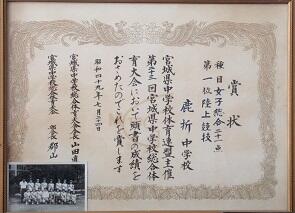 賞状
種目 女子総合 二十一点
第一位 陸上競技
鹿折中学校
宮城県中学校体育連盟主催
第二十三回宮城県中学校総合体
育大会において頭書の成績を
おさめたのでこれを賞します
昭和四十九年七月二十四日
宮城県中学校総合体育大会会長 山田
宮城県中学校総合体育大会 部長 郡山